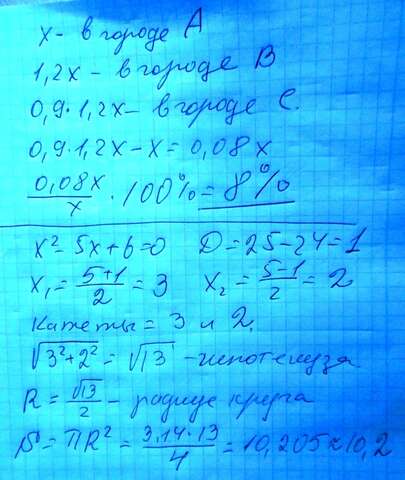 x - в городе A
1,2x - в городе B
0,9·1,2x - в городе C.
0,9·1,2x - x = 0,08x
0,08x/x · 100% = 8%
x² - 5x + 6 = 0 D = 25 - 24 = 1
x₁ = (5+1)/2 = 3 x₂ = (5-1)/2 = 2
Катеты = 3 и 2.
√(3²+2²) = √13 - гипотенуза
R = √13/2 - радиус круга
S = πR² = (3,14·13)/4 = 10,205 ≈ 10,2